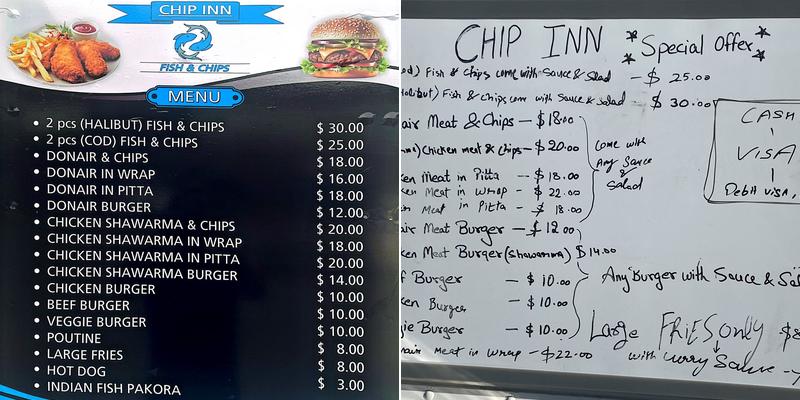 CHIP INN
FISH & CHIPS
MENU
• 2 pcs (HALIBUT) FISH & CHIPS $ 30.00
• 2 pcs (COD) FISH & CHIPS $ 25.00
• DONAIR & CHIPS $ 18.00
• DONAIR IN WRAP $ 16.00
• DONAIR IN PITTA $ 18.00
• DONAIR BURGER $ 12.00
• CHICKEN SHAWARMA & CHIPS $ 20.00
• CHICKEN SHAWARMA IN WRAP $ 18.00
• CHICKEN SHAWARMA IN PITTA $ 20.00
• CHICKEN SHAWARMA BURGER $ 14.00
• CHICKEN BURGER $ 10.00
• BEEF BURGER $ 10.00
• VEGGIE BURGER $ 10.00
• POUTINE $ 8.00
• LARGE FRIES $ 8.00
• HOT DOG $ 3.00
• INDIAN FISH PAKORA
CHIP INN *Special Offer*
od) Fish & Chips come with Sauce & Salad - $ 25.00
Halibut) Fish & Chips com with Sauce & Salad - $ 30.00
air Meat & Chips - $ 18.00
Chicken meat & chips - $ 20.00
ken Meat in Pitta - $ 18.00
ken Meat in wrap - $ 22.00
Meat in Pitta - $ 18.00
air Meat Burger - $ 12.00
ken Meat Burger (Shawarma) $ 14.00
f Burger - $ 10.00
ken Burger - $ 10.00
gie Burger - $ 10.00
nair meat in wrap - $22.00
Come with
Any Sauce
&
Salad
CASH
VISA
Debit visa,
Any Burger with Sauce & Sal
Large FRIES only $8
with curry Sauce